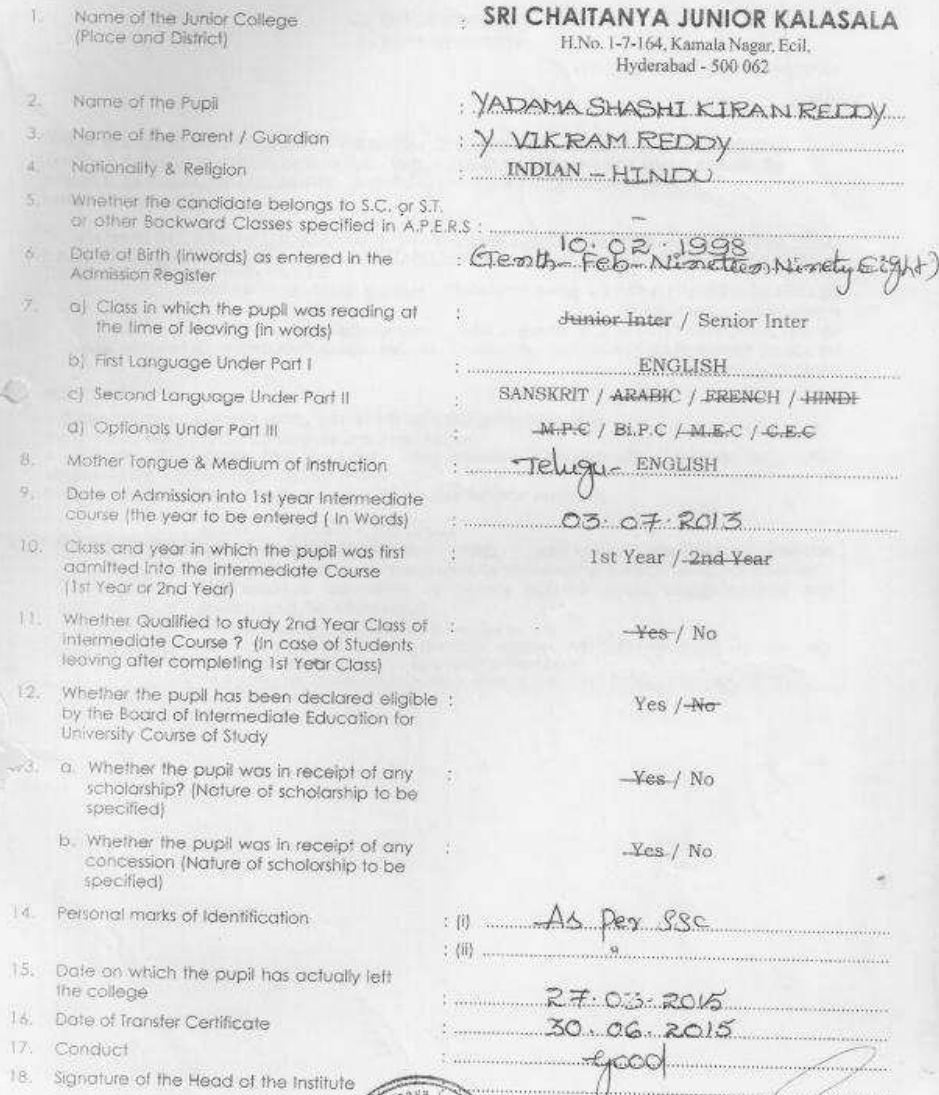 1. Name of the Junior College : SRI CHAITANYA JUNIOR KALASALA
(Place and District) H.No. 1-7-164, Kamala Nagar, Ecil,
Hyderabad - 500 062
2. Name of the Pupil : YADAMA SHASHI KIRAN REDDY
3. Name of the Parent / Guardian : Y VIKRAM REDDY
4. Nationality & Religion : INDIAN - HINDU
5. Whether the candidate belongs to S.C. or S.T.
or other Backward Classes specified in A.P.E.R.S : -
10.02.1998
6. Date of Birth (inwords) as entered in the : (Tenth-Feb-Nineteen Ninety Eight)
Admission Register
7. a) Class in which the pupil was reading at : Junior Inter / Senior Inter
the time of leaving (in words)
b) First Language Under Part I : ENGLISH
c) Second Language Under Part II : SANSKRIT / ARABIC / FRENCH / HINDI
d) Optionals Under Part III : M.P.C / Bi.P.C / M.E.C / C.E.C
8. Mother Tongue & Medium of Instruction : Telugu - ENGLISH
9. Date of Admission into 1st year Intermediate
course (the year to be entered ( In Words) : 03.07.2013
10. Class and year in which the pupil was first : 1st Year / 2nd Year
admitted into the intermediate Course
(1st Year or 2nd Year)
11. Whether Qualified to study 2nd Year Class of : Yes / No
intermediate Course ? (In case of Students
leaving after completing 1st Year Class)
12. Whether the pupil has been declared eligible : Yes / No
by the Board of Intermediate Education for
University Course of Study
13. a. Whether the pupil was in receipt of any : Yes / No
scholarship? (Nature of scholarship to be
specified)
b. Whether the pupil was in receipt of any : Yes / No
concession (Nature of scholorship to be
specified)
14. Personal marks of Identification : (i) As per SSC
: (ii) "
15. Date on which the pupil has actually left
the college : 27.03.2015
16. Date of Transfer Certificate : 30.06.2015
17. Conduct : good
18. Signature of the Head of the Institute